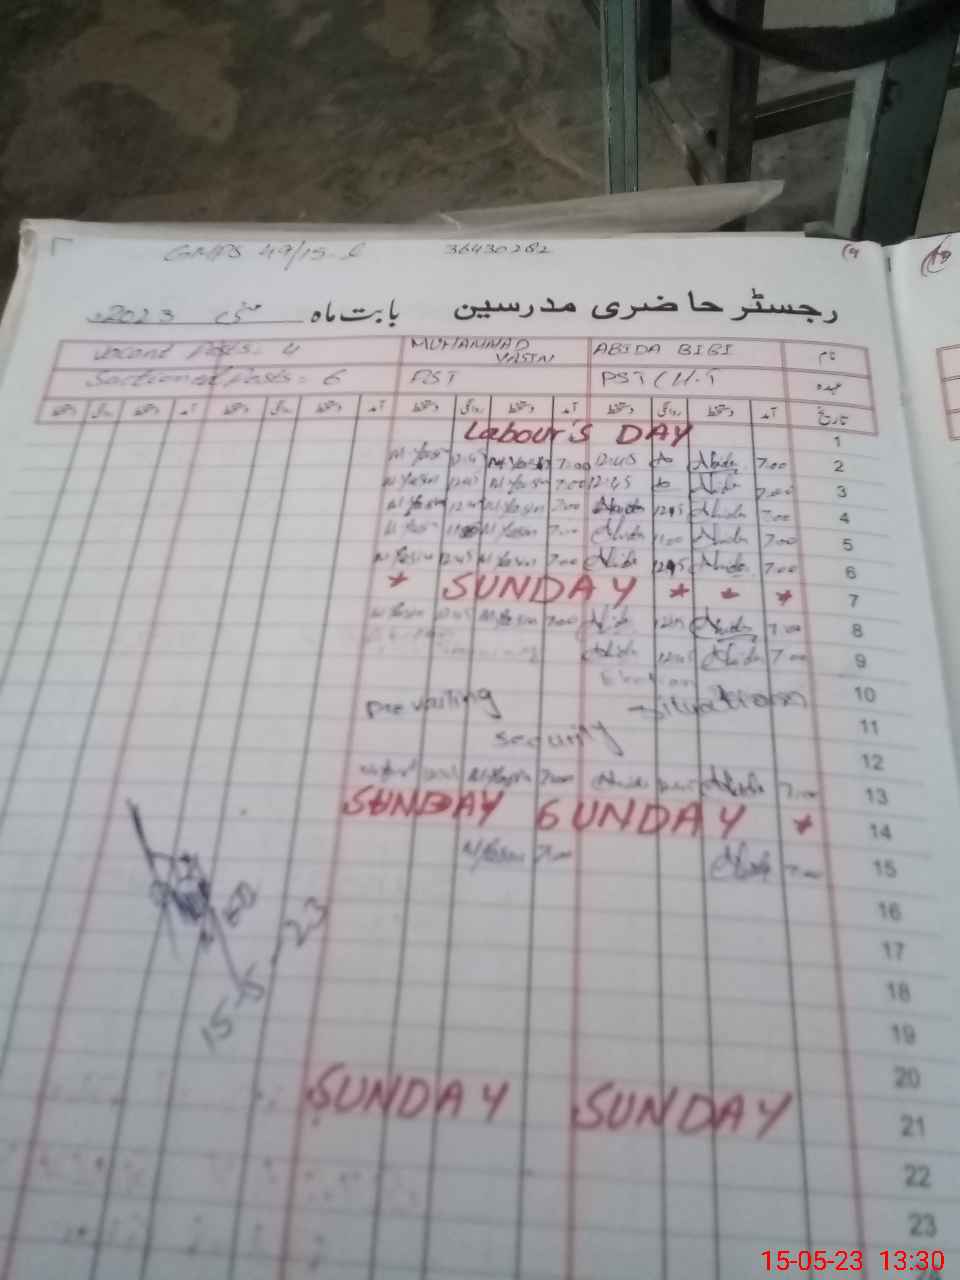 GMPS 49/15-L 36430282
رجسٹر حاضری مدرسین بابت ماہ مئی 2023ء
نام ABIDA BIBI MUHAMMAD YASIN Vacant Posts = 4
عہدہ PST / H.T PST Sactioned Posts = 6
تاریخ آمد دستخط روانگی دستخط آمد دستخط روانگی دستخط آمد دستخط روانگی دستخط آمد دستخط روانگی دستخط
1 Labour's DAY
2 7:00 Abida 12:45 7:00 M Yasin 12:45 M Yasin
3 7:00 Abida 12:45 7:00 M Yasin 12:45 M Yasin
4 7:00 Abida 12:45 Abida 7:00 M Yasin 12:45 M Yasin
5 7:00 Abida 11:00 Abida 7:00 M Yasin 11:00 M Yasin
6 7:00 Abida 12:45 Abida 7:00 M Yasin 12:45 M Yasin
7 * SUNDAY * * *
8 7:00 Abida 12:45 Abida 7:00 M Yasin 12:45 M Yasin
9 7:00 Abida 12:45 Abida
10 prevailing situations
11 security
12
13 7:00 Abida Abida 7:00 M Yasin M Yasin
14 SUNDAY SUNDAY *
15 7:00 Abida 7:00 M Yasin
16
17
18
15-5-23
19
20
21 SUNDAY SUNDAY
22
23
15-05-23 13:30